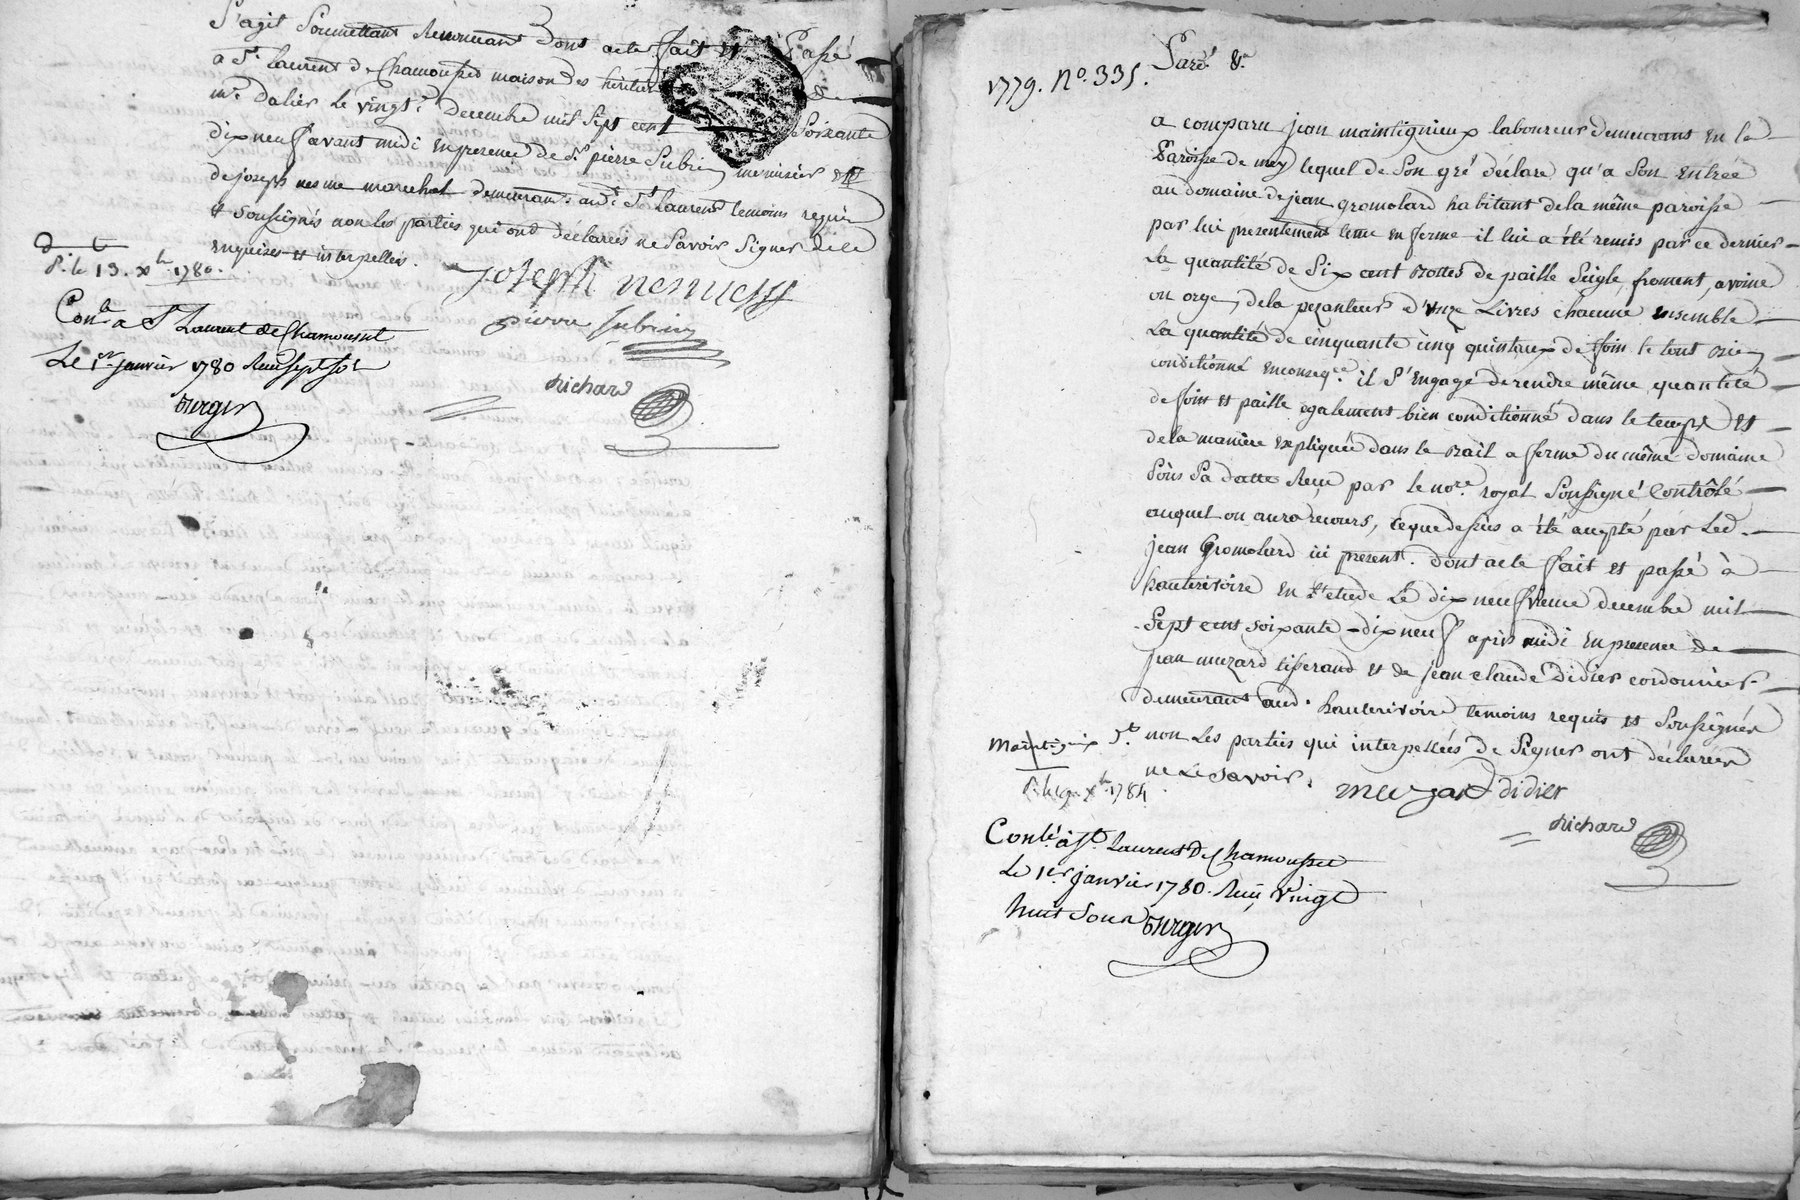 S'agit Soumettant Renonceant Dont acte fait et Passé
a St. Laurent de Chamousset maison des héritiers de
me. Dalier Le vingt Decembre mil Sept cent Soixante
dix neuf avant midi en presence de Sr. pierre Subrin menuisier et
de joseph nesme marechal demeurant aud. St. Laurent temoins requis
& Soussignés non les parties qui ont déclarées ne Savoir Signer de ce
enquises et interpellées.
joseph nesme
pierre subrin
Richard
P. le 13. xbre 1780.
Conlé a St Laurent de Chamousset
Le 1er janvier 1780 Reçu sept sols
1779. No. 335.
Pard. &.
a comparu jean maintignieux laboureur demeurant en la
Paroisse de mey lequel de Son gré déclare qu'a Son entrée
au domaine de jean gromolard habitant de la même paroisse
par lui présentement tenu en ferme il lui a été remis par ce dernier
La quantité de Six cent Bottes de paille Seigle, froment, avoine
ou orge, de la pezanteur d'onze Livres chacune ensemble
La quantité de cinquante cinq quintaux de foin le tout Bien
conditionné enconseqce. il S'engage de rendre même quantité
de foin et paille egalement bien conditionné dans le temps et
de la manière expliquée dans le Bail a ferme du même domaine
Sous Sa datte Reçu par le nore. royal Soussigné Contrôlé
auquel on aura recours, ce que dessus a été accepté par Led.
jean Gromolard ici present. dont acte fait et passé à
hauterivoire en L'etude Le dix neufvieme decembre mil
Sept cent soixante-dix neuf après midi en presence de
jean muzard tisserand et de jean claude Didier cordonnier
demeurant aud. hauterivoire temoins requis et Soussignés
non Les parties qui interpellées de Signer ont déclarées
ne Le Savoir.
muzard didier
Richard
xbre 1784
Conlé à St. Laurent De Chamousset
Le 1er janvier 1780. Reçu vingt
huit Sous